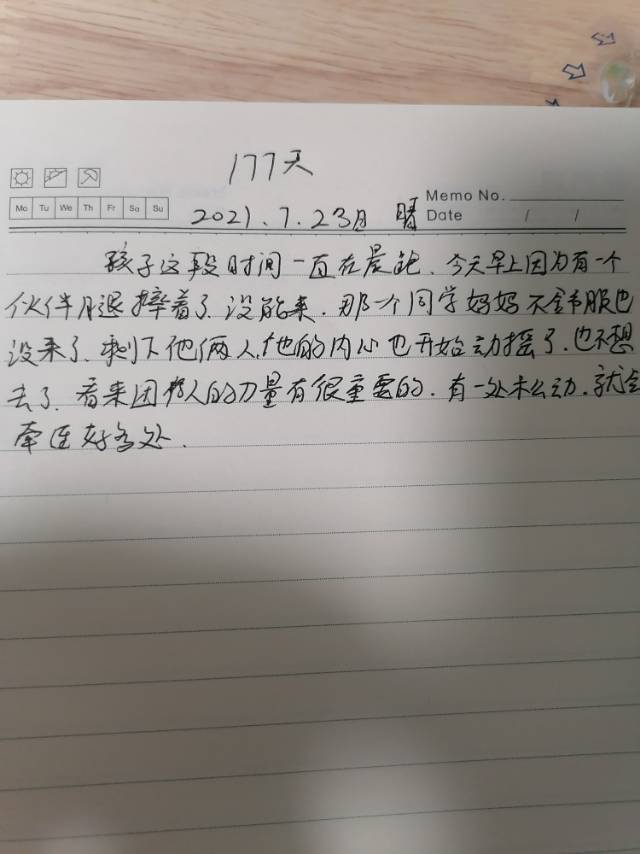 177天
Mo Tu We Th Fr Sa Su
2021.7.23日 晴
Memo No.
Date / /
孩子这段时间一直在晨跑、今天早上因为有一个
伙伴腿摔着了没能来.那一个同学妈妈不舒服也
没来了、剩下他俩人,他的内心也开始动摇了.也不想
去了.看来团队人的力量有很重要的.有一处未么动.就会
牵连好多处.